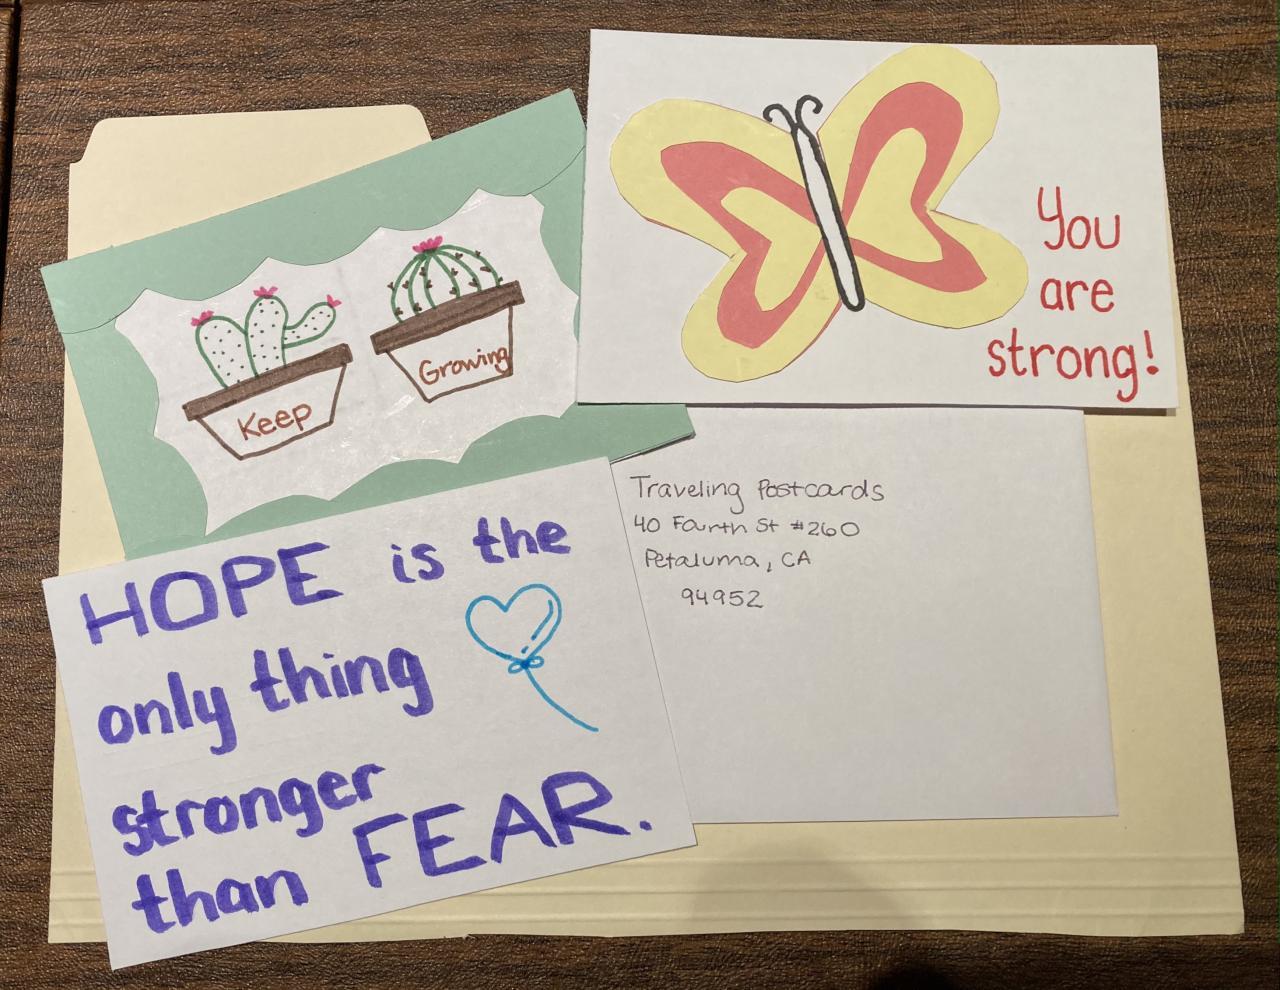 Keep
Growing
You
are
strong!
Traveling Postcards
40 Fourth St #260
Petaluma, CA
94952
HOPE is the
only thing
stronger
than FEAR.